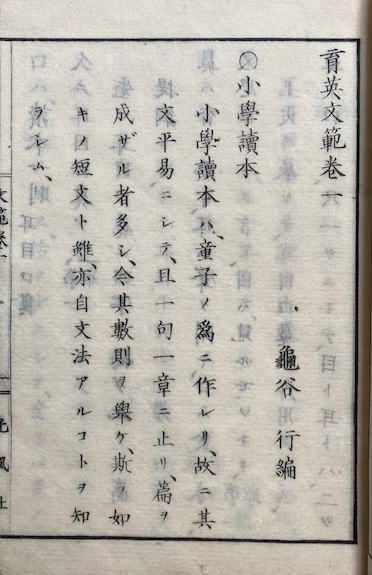 育英文範卷一
龜谷行編
小學讀本
小學讀本ハ、童子ノ爲ニ作レリ、故ニ其
文平易ニシテ、且一句一章ニ止リ、篇ヲ
成ザル者多シ、今其數則ヲ舉ケ、斯ノ如
キノ短文ト雖、亦自文法アルコトヲ知
ラシム、
光風社